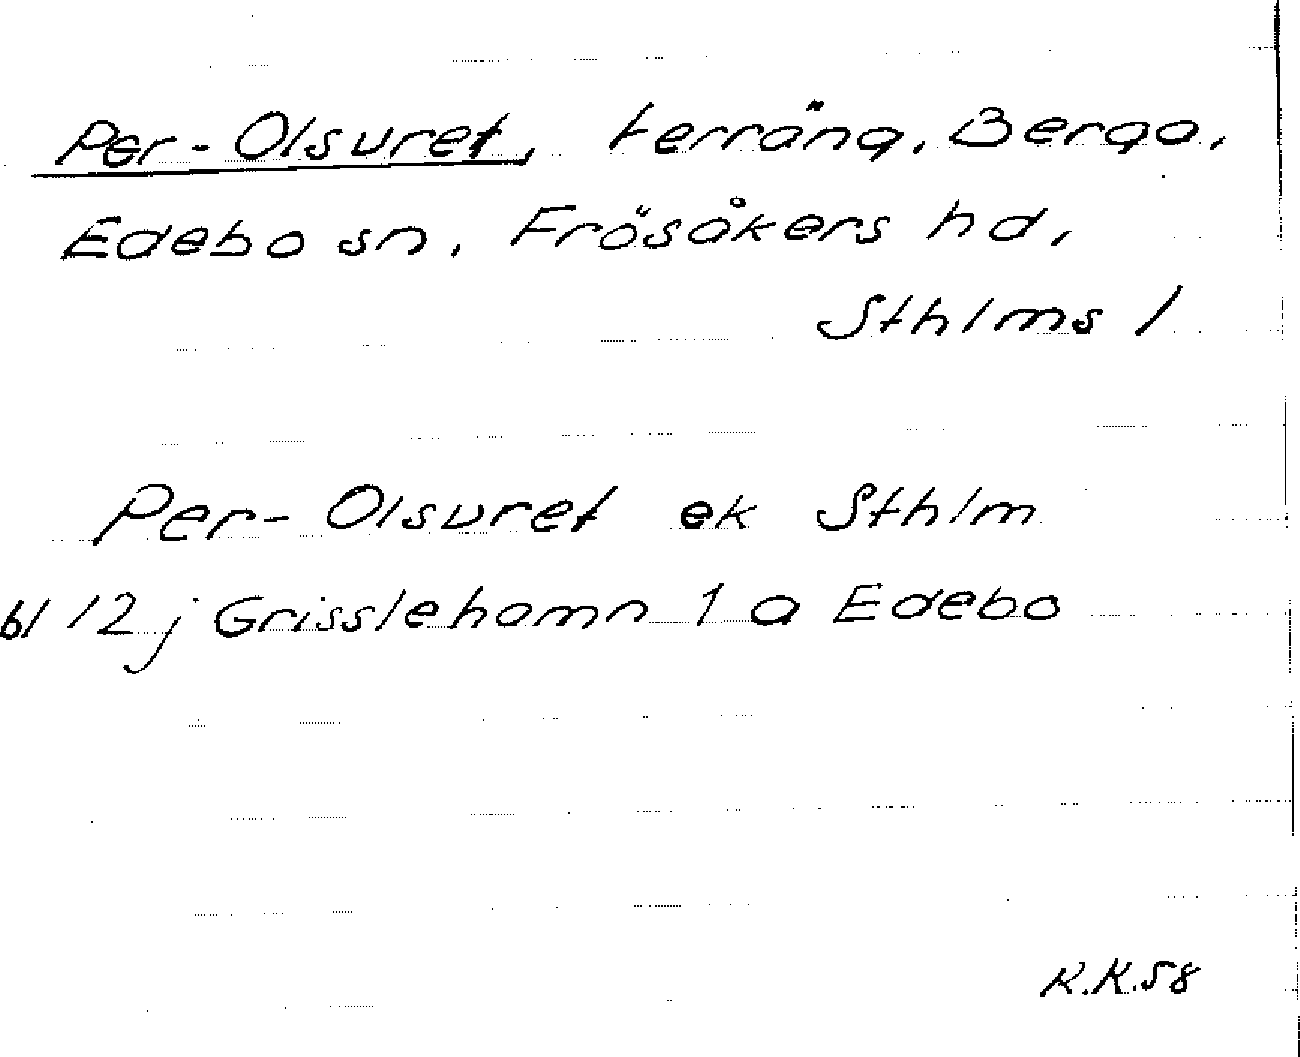 Per-Olsuret, terräng, Berga,
Edebo sn, Frösåkers hd,
Sthlms l
Per-Olsuret ek Sthlm
bl 12 j Grisslehamn 1 a Edebo
K.K.58